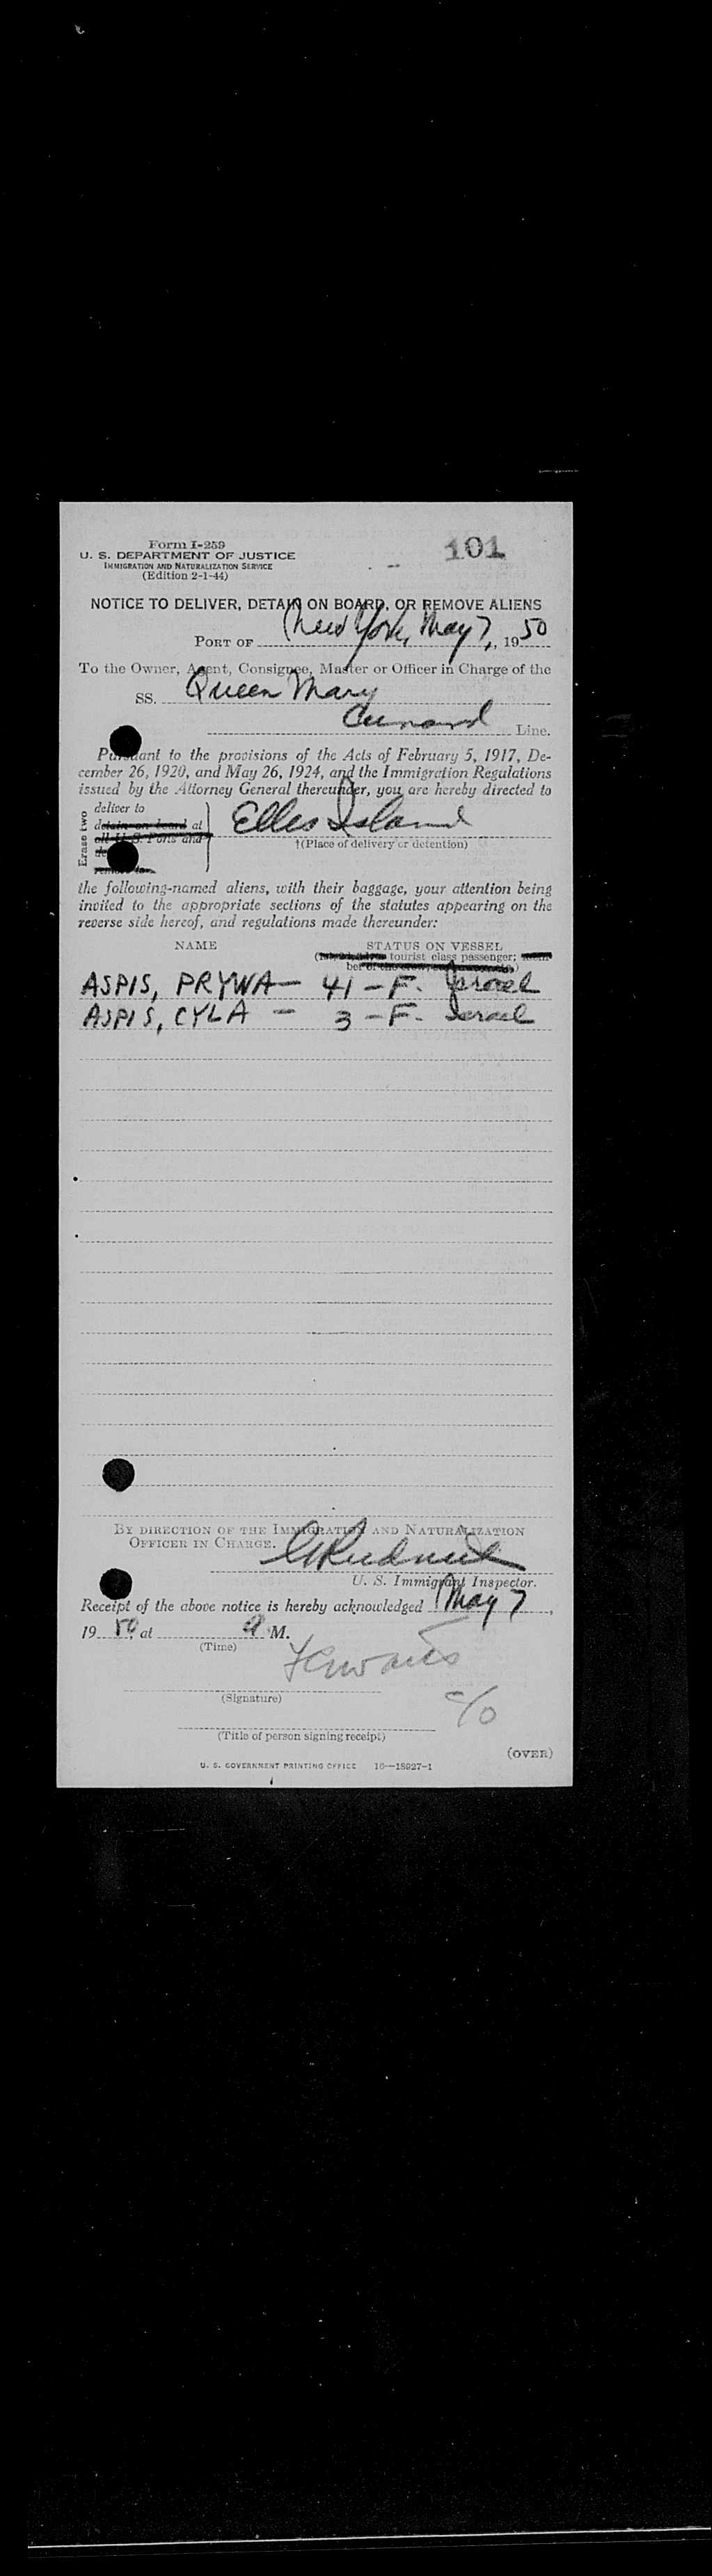 Form I-259
101
U. S. DEPARTMENT OF JUSTICE
IMMIGRATION AND NATURALIZATION SERVICE
(Edition 2-1-44)
NOTICE TO DELIVER, DETAIN ON BOARD, OR REMOVE ALIENS
PORT OF New York, May 7, 1950
To the Owner, Agent, Consignee, Master or Officer in Charge of the
SS. Queen Mary
Cunard Line.
Pursuant to the provisions of the Acts of February 5, 1917, De-
cember 26, 1920, and May 26, 1924, and the Immigration Regulations
issued by the Attorney General thereunder, you are hereby directed to
Erase two
deliver to
detain on board at
Elles Island
all U.S. Ports and
†(Place of delivery or detention)
remove to
the following-named aliens, with their baggage, your attention being
invited to the appropriate sections of the statutes appearing on the
reverse side hereof, and regulations made thereunder:
NAME STATUS ON VESSEL
tourist class passenger;
ASPIS, PRYWA - 41 - F. Israel
ASPIS, CYLA - 3 - F. Israel
BY DIRECTION OF THE IMMIGRATION AND NATURALIZATION
OFFICER IN CHARGE.
U. S. Immigrant Inspector.
Receipt of the above notice is hereby acknowledged May 7,
1950, at A M.
(Time)
(Signature)
c/o
(Title of person signing receipt)
(OVER)
U. S. GOVERNMENT PRINTING OFFICE 16—18927-1